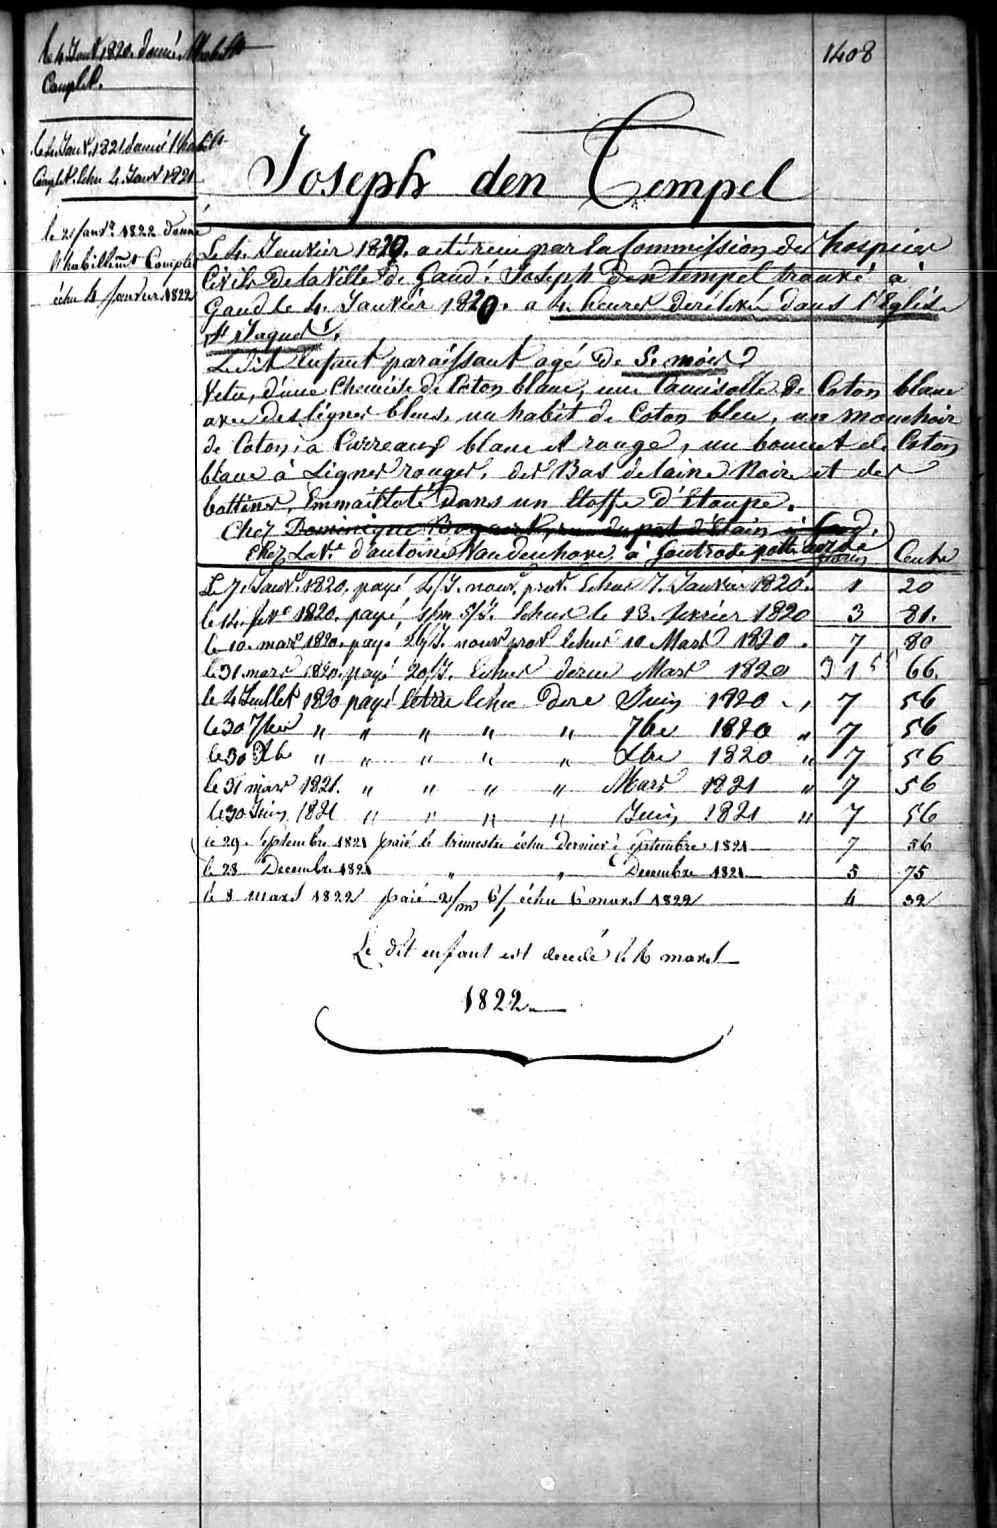 1408
le 4 Janv. 1820. donné l'habillt
Complet.
le 4 Janv. 1821 donné l'habillt
Complet. échu 4. Janv 1821
le 21 Janvr. 1822 donné
l'habillemt Complet
échu 4 Janvier 1822
Joseph den Tempel
Le 4. Janvier 1820. a été reçu par la Commission des hospices
Civils de la Ville de Gand. Joseph den tempel trouvé à
Gand le 4. Janvier 1820. a 4. heures dans l'Eglise
St. Jaques.
Ledit Enfant paraissant agé de 5. mois
Vetu, d'une Chemise de Coton blanc, une Camisolle de Coton blanc
avec des lignes bleus, un habit de Coton bleu, un mouchoir
de Coton, a Carreaux blanc et rouge, un bonnet de Coton
blanc à Lignes rouges, des Bas de laine Noire et des
bottines, Emmailloté dans un Etoffe d'Etoupe.
Chez Dominique rue du pot d'Etain à Gand.
Chez La Ve. d'antoine Vandenhove à Gontrode
Cents
Le 7. Janvr. 1820. payé 4/J. nour. prov. Echue 7. Janvier 1820. 1 20
le 14. fvre 1820. payé, 1/m. 5/J. Echue le 13. fevrier 1820 3 81.
le 10. mars 1820. payé 26/J. nour prov Echue 10 Mars 1820. 7 80
le 31. mars 1820. payé 20/J. Echue dernier Mars 1820 66.
le 4 Juillet 1820 payé Echue Juin 1820 " 7 56
le 30 7bre " " " " " 7bre 1820 " 7 56
le 30 Xbre " " " " " Xbre 1820 " 7 56
le 31 mars 1821. " " " " " Mars 1821 " 7 56
le 30 Juin 1821 " " " " " Juin 1821 " 7 56
le 29. Septembre 1821 paié le trimestre échu dernier Septembre 1821 7 56
le 28 Decembre 1821 " " Decembre 1821 5 75
le 8 mars 1822 paié 2/m 6/J échu 6 mars 1822 4 32
Le dit enfant est decedé le 6 mars
1822